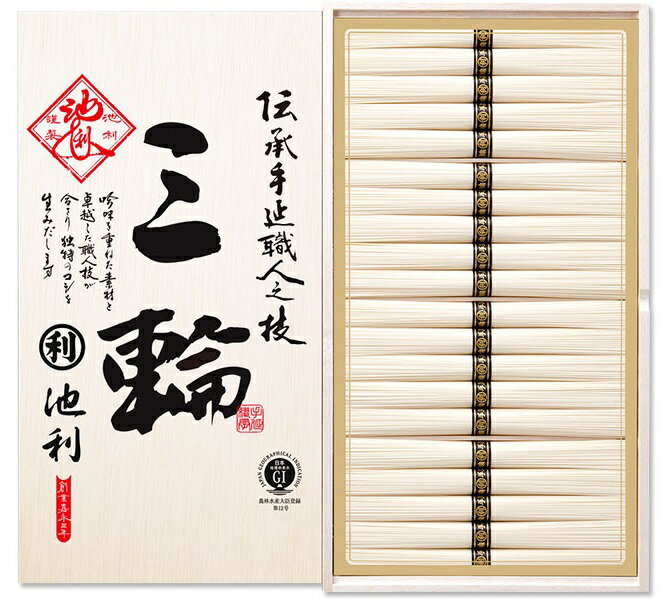 伝承手延職人之技
三輪
池利
謹製
池利
吟味を重ねた素材と
卓越した職人技が
合さり 独特のコシを
生みだします
利
池利
創業嘉永三年
JAPAN GEOGRAPHICAL INDICATION
日本
地理的表示
GI
農林水産大臣登録
第12号